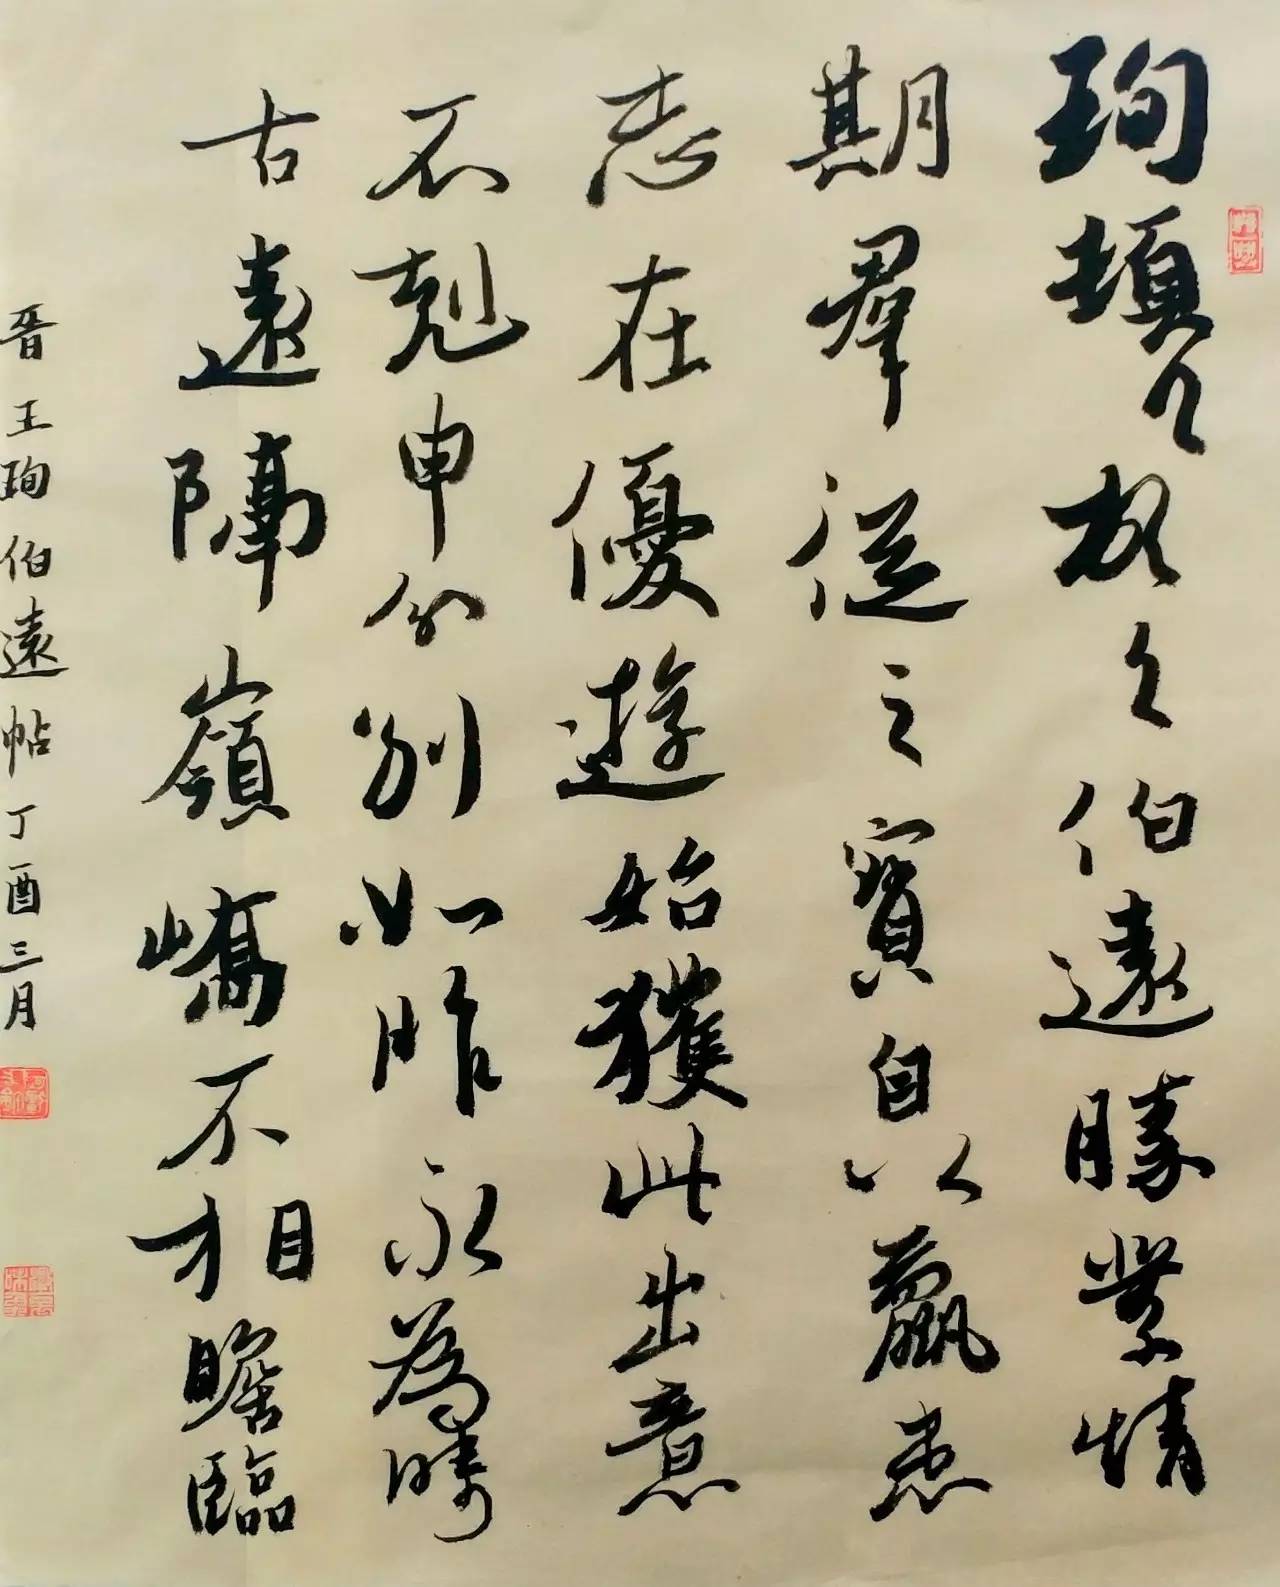 珣頓首頓首伯遠勝業情
期羣從之寶自以羸患
志在優遊始獲此出意
不剋申分別如昨永為疇
古遠隔嶺嶠不相瞻臨
晋王珣伯遠帖丁酉三月